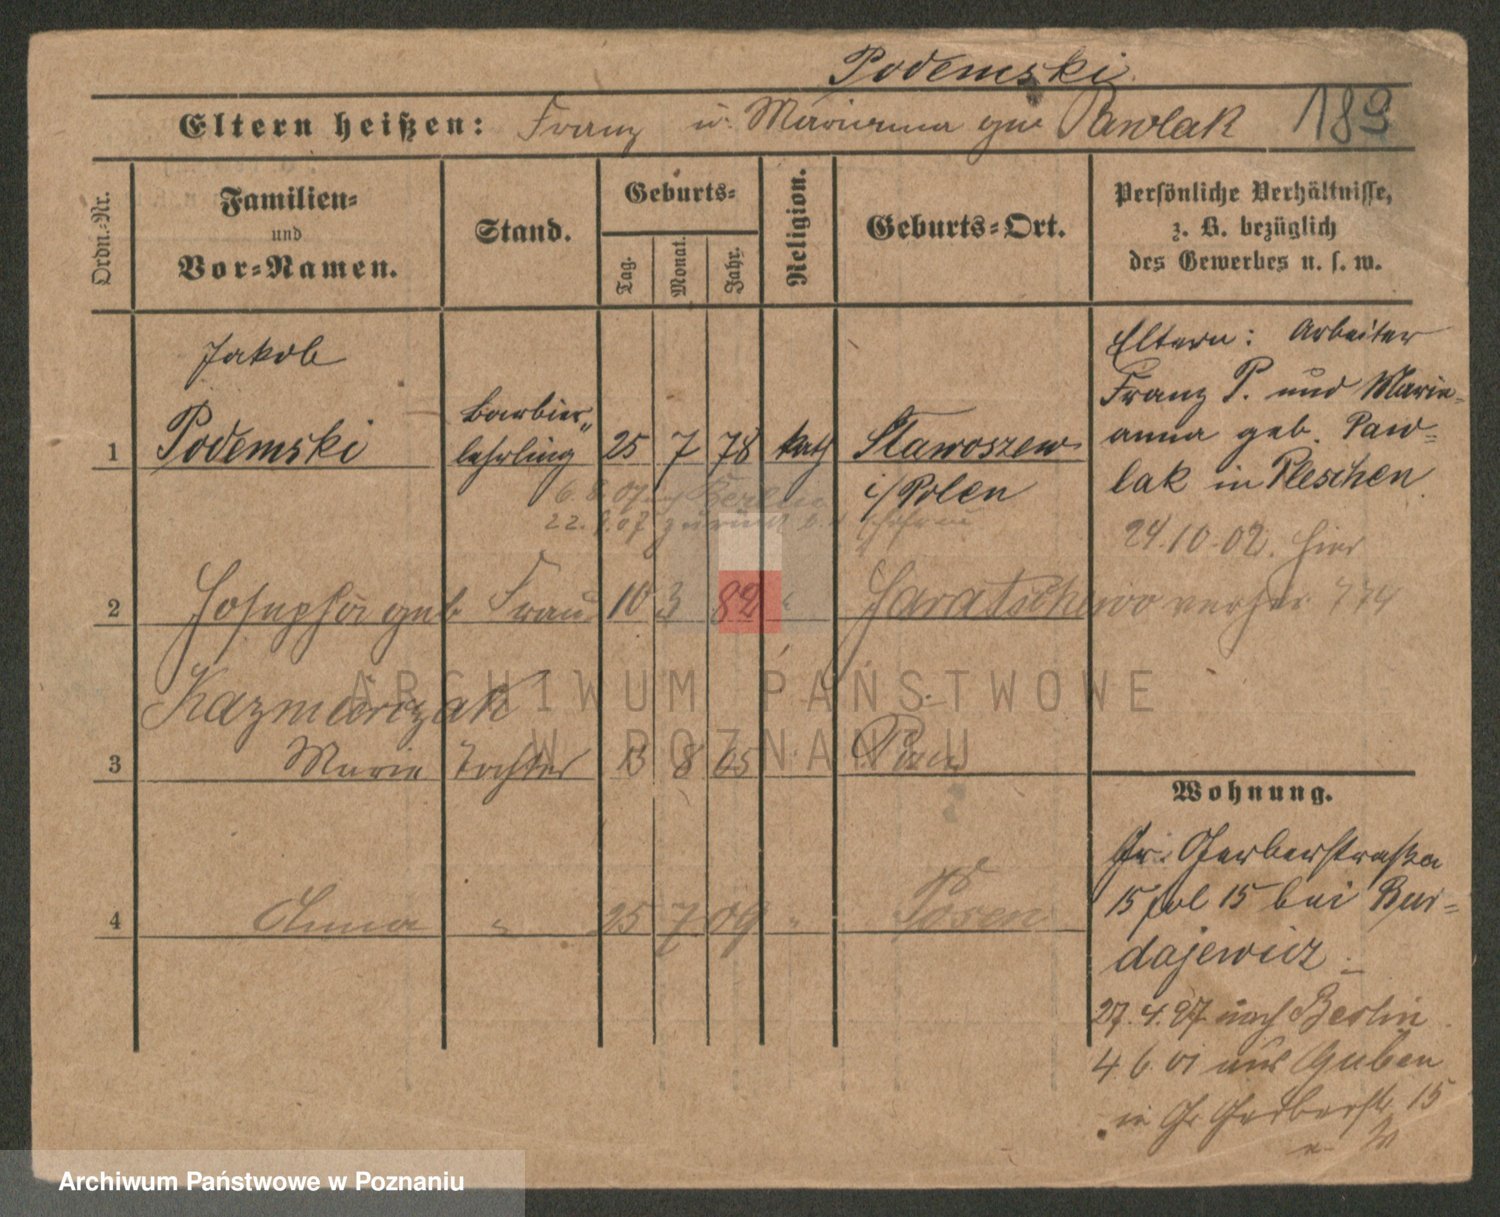 Podemski
Eltern heißen: Franz u. Marianna geb. Pawlak 189
Ordn.-Nr.
Familien-
und
Vor-Namen.
Stand.
Geburts-
Tag.
Monat.
Jahr.
Religion.
Geburts-Ort.
Persönliche Verhältnisse,
z. B. bezüglich
des Gewerbes u. s. w.
Jakob
1 Podemski Barbier- lehrling 25 7 78 kath Stawoszew
i/Polen
6. 6. 07 nach Berlin
22. 07 zurück
2 Josepha geb Frau 10 3 82 "
Kazmierczak
3 Marie Tochter 13 8 05 "
4 Anna " 25 7 09 " Posen
Eltern: Arbeiter
Franz P. und Mari-
anna geb. Paw-
lak in Pleschen
24.10.02. hier
verher 774
Wohnung.
Gr. Gerberstraße
15 pol 15 bei Bur-
dajewicz.
27.4.97 nach Berlin
4.6.01 aus Guben
in Gr Gerberstr. 15
ARCHIWUM PAŃSTWOWE
W POZNANIU
Archiwum Państwowe w Poznaniu